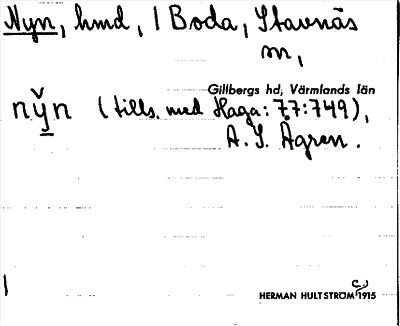 Nyn, hmd, 1 Boda, Stavnäs
sn,
Gillbergs hd, Värmlands län
ny̌n (tills. med Haga: 77:749),
A. I. Ågren.
HERMAN HULTSTRÖM 1915